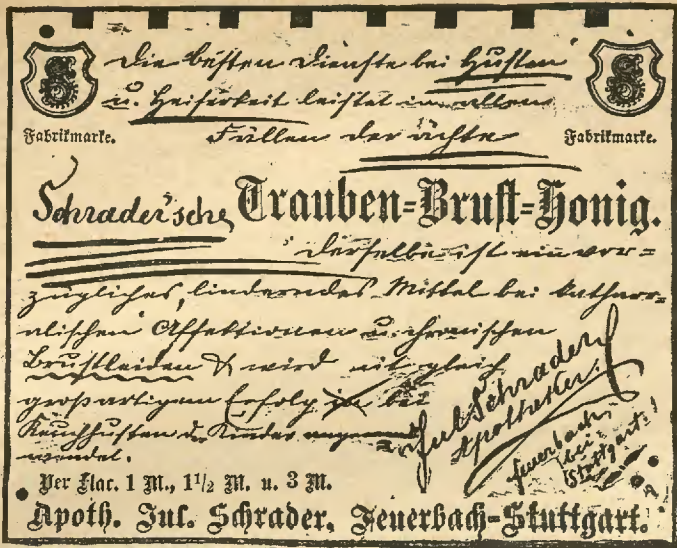 Die besten Dienste bei Husten
u. Heiserkeit leistet in allen
Fabrikmarke. Fällen der ächte Fabrikmarke.
Schrader'sche Trauben-Brust-Honig.
Derselbe ist ein vor-
zügliches, linderndes Mittel bei kathar-
alischen Affektionen u. chronischen
Brustleiden & wird mit gleich
großartigem Erfolg bei
Keuchhusten d. Kinder
wendet.
Jul Schrader
Apotheker.
Feuerbach
bei
Stuttgart.
Per Flac. 1 M., 1½ M. u. 3 M.
Apoth. Jul. Schrader, Feuerbach-Stuttgart.